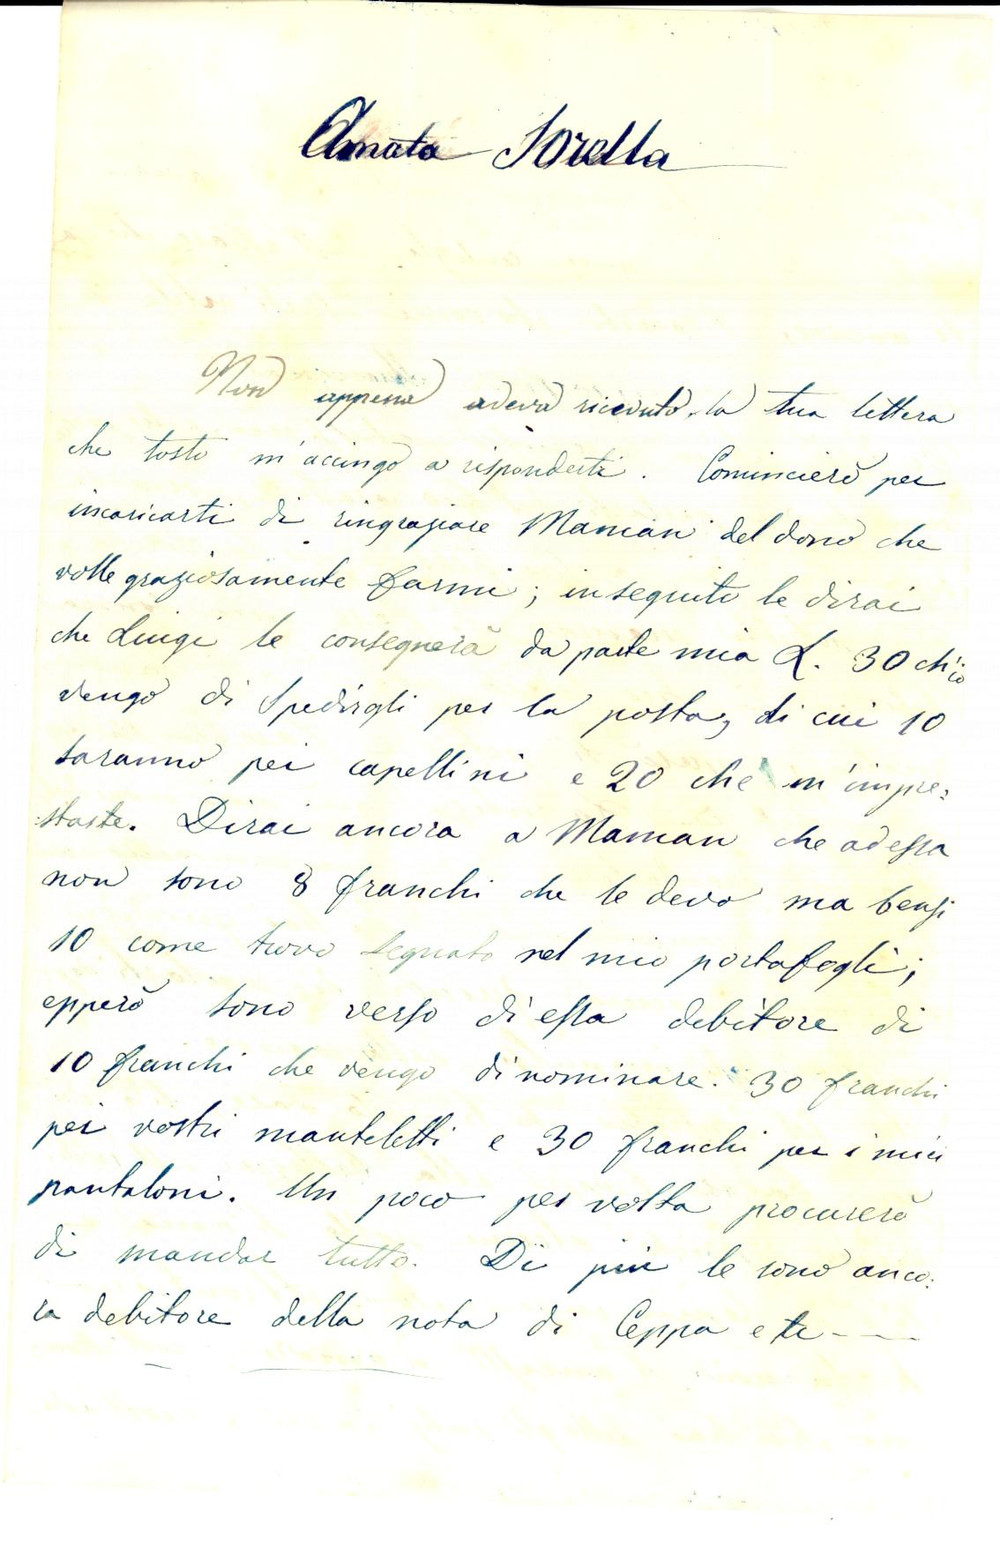 Amata Sorella
Non appena aveva ricevuto la tua lettera
che tosto m'accingo a risponderti. Comincierò per
incaricarti di ringraziare Maman del dono che
volle graziosamente farmi; inseguito le dirai
che Luigi le consegnerà da parte mia L. 30 ch'io
vengo di spedirgli per la posta, di cui 10
saranno pei capellini e 20 che m'impre=
:staste. Dirai ancora a Maman che adessa
non sono 8 franchi che le devo ma bensi
10 come trovo segnato nel mio portafogli;
epperò sono verso di essa debitore di
10 franchi che vengo di nominare. 30 franchi
pei vostri manteletti e 30 franchi per i miei
pantaloni. Un poco per volta procurerò
di mandar tutto. Di più le sono anco:
ra debitore della nota di Ceppa e te ---